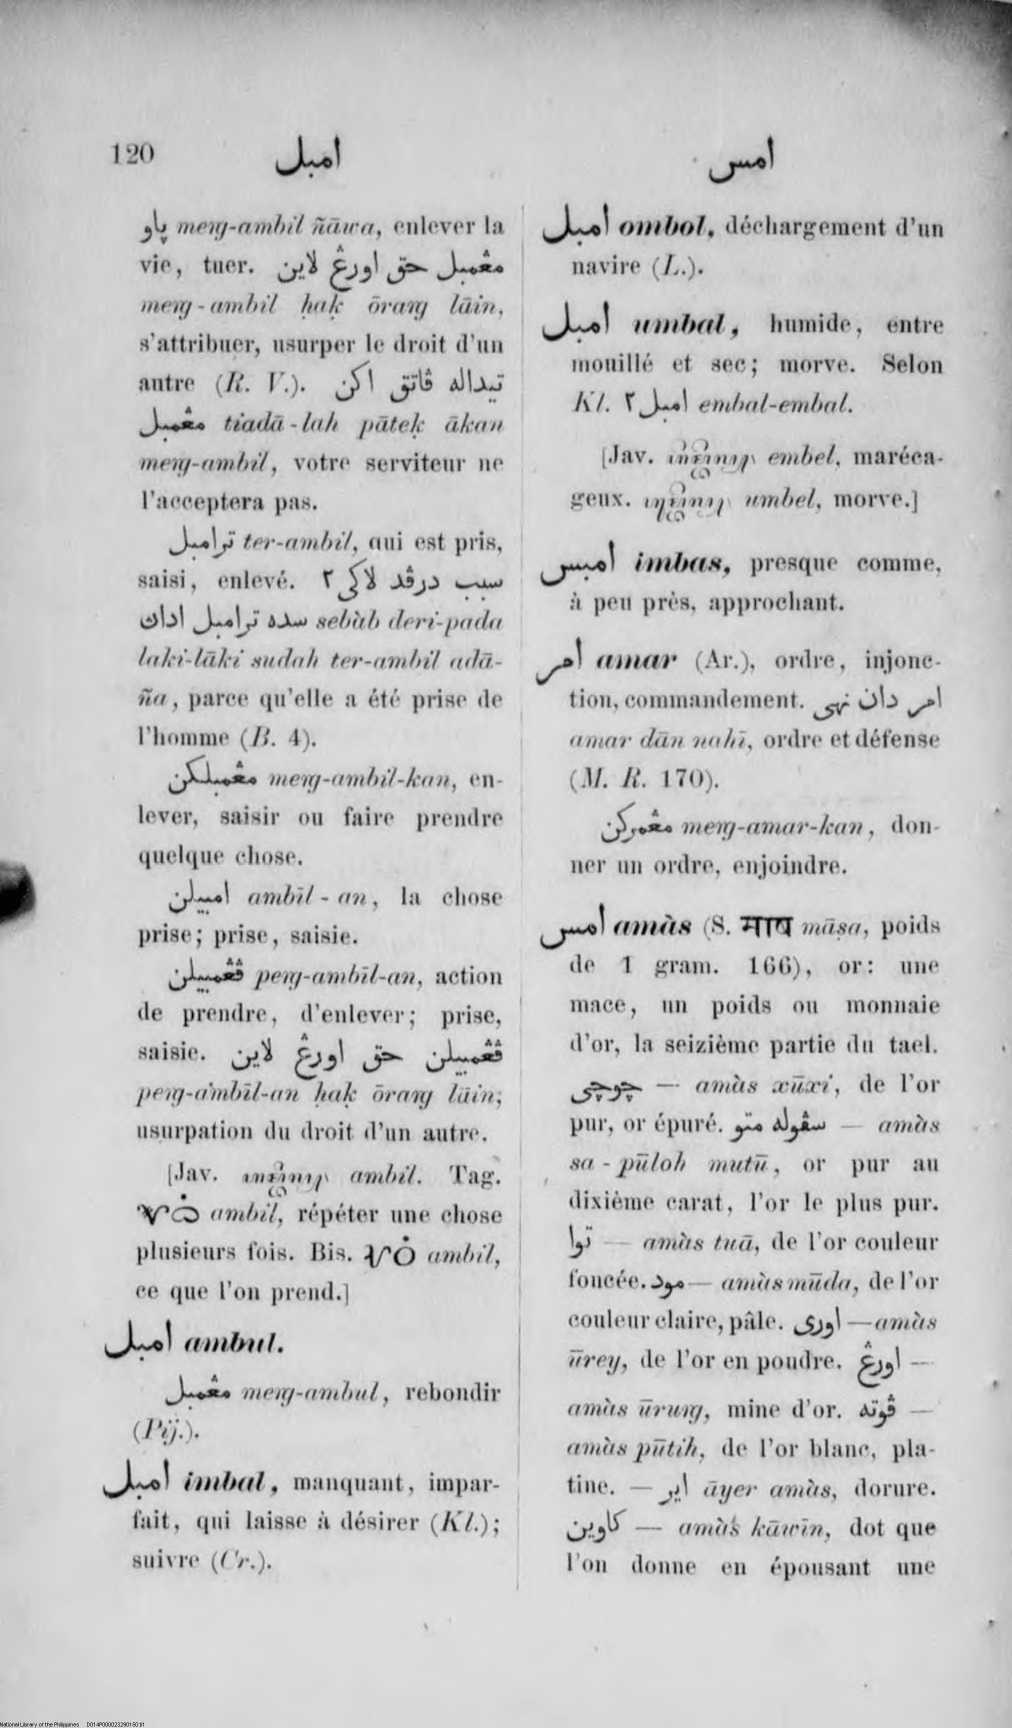 120 امبل امس
ڽاو meṅg-ambil ñāwa, enlever la
vie, tuer. مڠمبل حق اورڠ لاين
meṅg-ambil ḥaḳ ōraṅg lāin,
s'attribuer, usurper le droit d'un
autre (R. V.). تيداله ڤاتق اكن
مڠمبل tiadā-lah pāteḳ ākan
meṅg-ambil, votre serviteur ne
l'acceptera pas.
ترامبل ter-ambil, qui est pris,
saisi, enlevé. سبب درڤد لاكي٢
سده ترامبل اداڽ sebàb deri-pada
laki-lāki sudah ter-ambil adā-
ña, parce qu'elle a été prise de
l'homme (B. 4).
مڠمبلكن meṅg-ambil-kan, en-
lever, saisir ou faire prendre
quelque chose.
امبيلن ambīl-an, la chose
prise; prise, saisie.
ڤڠمبيلن peṅg-ambīl-an, action
de prendre, d'enlever; prise,
saisie. ڤڠمبيلن حق اورڠ لاين
peṅg-ambīl-an ḥaḳ ōraṅg lāin,
usurpation du droit d'un autre.
[Jav. ambil. Tag.
ambil, répéter une chose
plusieurs fois. Bis. ambil,
ce que l'on prend.]
امبل ambul.
مڠمبل meṅg-ambul, rebondir
(Pij.).
امبل imbal, manquant, impar-
fait, qui laisse à désirer (Kl.);
suivre (Cr.).
امبل ombol, déchargement d'un
navire (L.).
امبل umbal, humide, entre
mouillé et sec; morve. Selon
Kl. امبل٢ embal-embal.
[Jav. embel, maréca-
geux. umbel, morve.]
امبس imbas, presque comme,
à peu près, approchant.
امر amar (Ar.), ordre, injonc-
tion, commandement. امر دان نهى
amar dān nahī, ordre et défense
(M. R. 170).
مڠمركن meṅg-amar-kan, don-
ner un ordre, enjoindre.
امس amàs (S. माष māṣa, poids
de 1 gram. 166), or: une
mace, un poids ou monnaie
d'or, la seizième partie du tael.
چوچي — amàs xūxi, de l'or
pur, or épuré. سڤوله متو — amàs
sa-pūloh mutū, or pur au
dixième carat, l'or le plus pur.
توا — amàs tuā, de l'or couleur
foncée. مود — amàs mūda, de l'or
couleur claire, pâle. اورى — amàs
ūrey, de l'or en poudre. اورڠ —
amàs ūruṅg, mine d'or. ڤوته —
amàs pūtih, de l'or blanc, pla-
tine. — اير āyer amàs, dorure.
كاوين — amàs kāwīn, dot que
l'on donne en épousant une
National Library of the Philippines